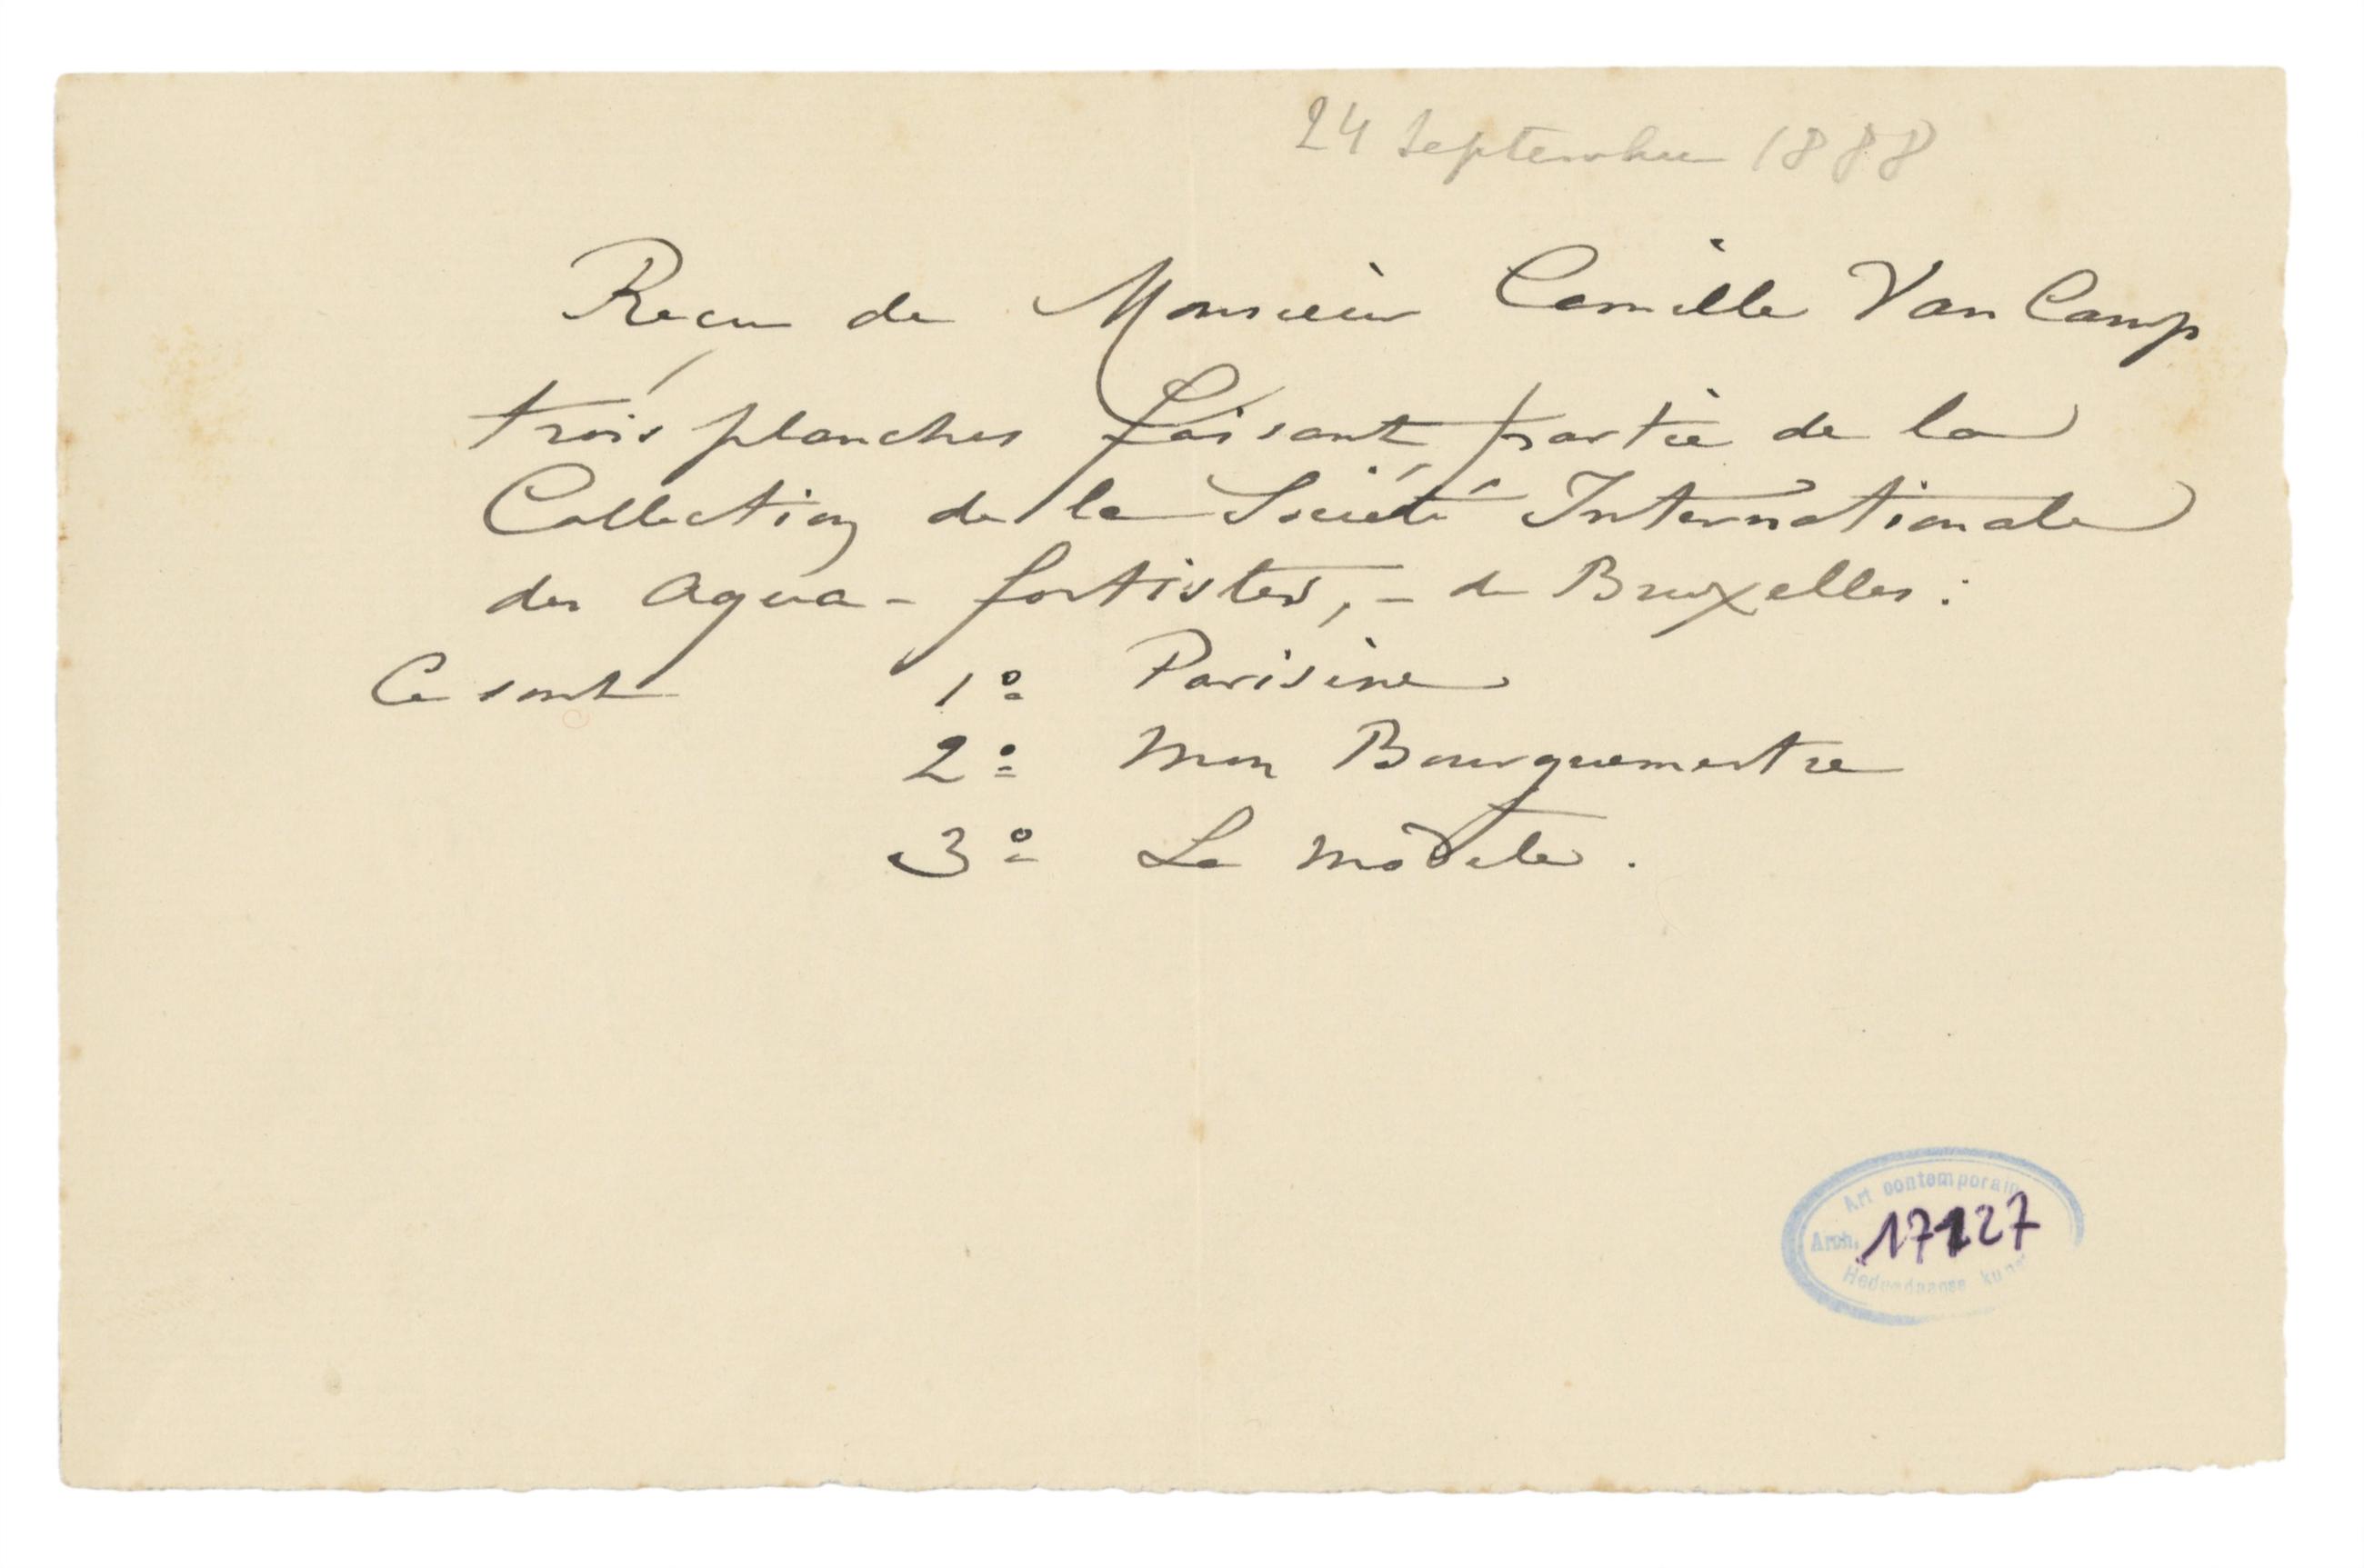 24 Septembre 1888
Recu de Monsieur Camille Van Camp
trois planches faisant partie de la
Collection de la Société Internationale
des aqua-fortistes, - de Bruxelles :
Ce sont 1º Parisine
2º Mon Bourguemestre
3º Le modèle.
Art contemporain
Arch. 17127
Hedendaagse kunst